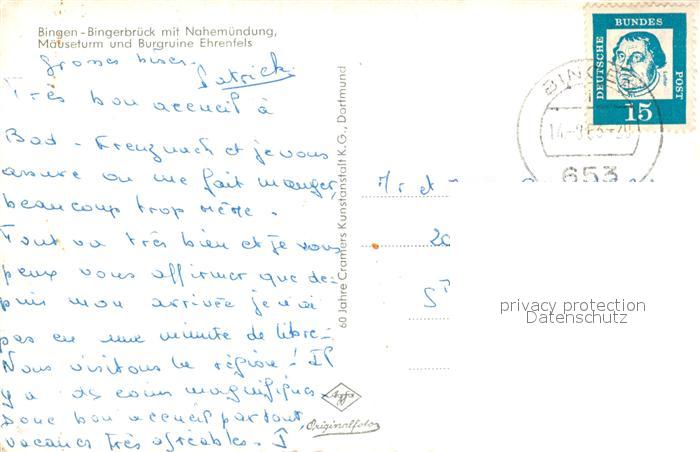 Bingen - Bingerbrück mit Nahemündung,
Mäuseturm und Burgruine Ehrenfels
Grosses bises.
Patrick
Très bon accueil à
Bad-Kreuznach et je vous
assure on me fait manger,
beaucoup trop même.
Tout va très bien et je vous
peux vous affirmer que de-
puis mon arrivée je n'ai
pas eu une minute de libre-
Nous visitons la région! Il
y a des coins magnifiques
Donc bon accueil partout,
vacances très agréables-
60 Jahre Cramers Kunstanstalt K.G., Dortmund
Agfa
Originalfoto
DEUTSCHE
BUNDES
POST
Luther
15
BINGEN
653
Mr et
20
ST
privacy protection
Datenschutz